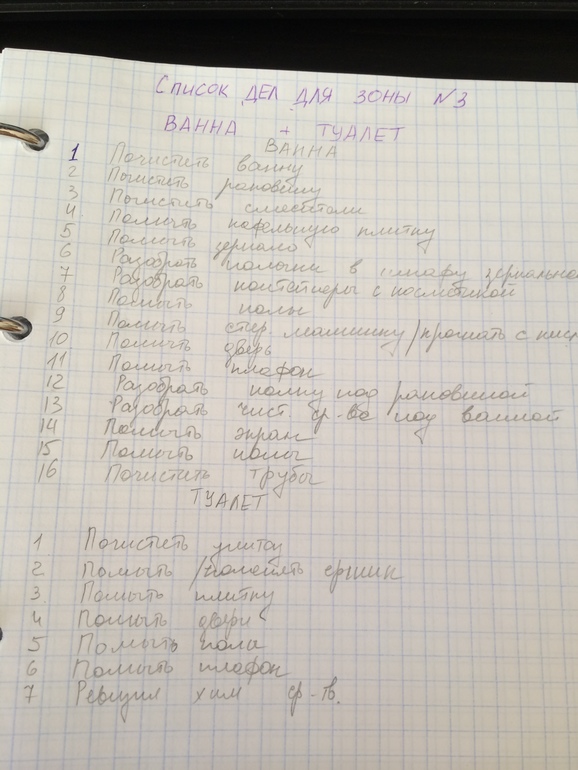 Список дел для зоны №3
Ванна + Туалет
Ванна
1 Почистить ванну
2 Почистить раковину
3 Почистить смесители
4 Помыть кафельную плитку
5 Помыть зеркало
6 Разобрать полочки в шкафу зеркально
7 Разобрать контейнеры с косметикой
8 Помыть полы
9 Помыть стир. машинку/прогнать с
10 Помыть дверь
11 Помыть плафон
12 Разобрать полку под раковиной
13 Разобрать чист. ср-ва под ванной
14 Помыть экран
15 Помыть полы
16 Почистить трубы
Туалет
1 Почистить унитаз
2 Помыть/поменять ершик
3 Помыть плитку
4 Помыть двери
5 Помыть пола
6 Помыть плафон
7 Ревизия хим ср-тв.